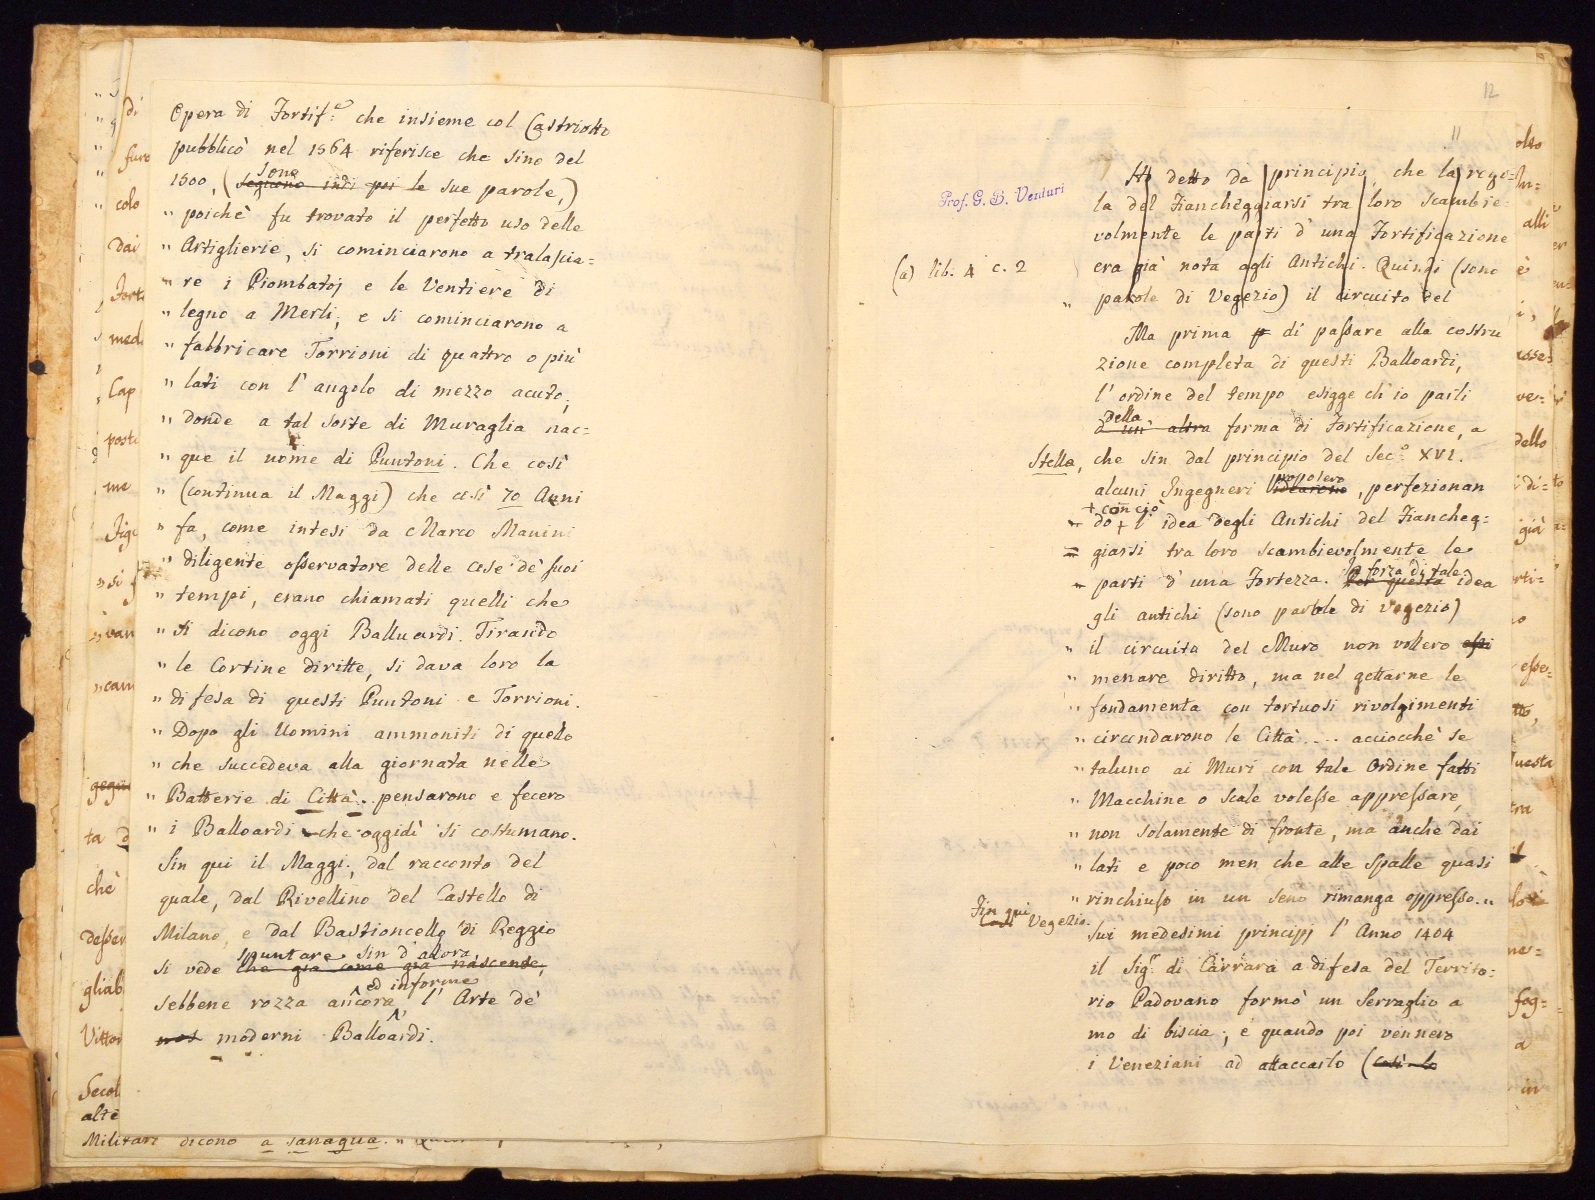 Opera di Fortif.e che insieme col Castriotto
pubblicò nel 1564 riferisce che sino del
1500, (sono le sue parole,)
" poichè fu trovato il perfetto uso delle
" Artiglierie, si cominciarono a tralascia=
" re i Piombatoj e le Ventiere di
" legno a Merli; e si cominciarono a
" fabbricare Torrioni di quattro o più
" lati con l'angolo di mezzo acuto;
" donde a tal sorte di Muraglia nac=
" que il nome di Puntoni. Che così
" (continua il Maggi) che così 70 Anni
" fa, come intesi da Marco Manini
" diligente osservatore delle cose de' suoi
" tempi, erano chiamati quelli che
" si dicono oggi Balluardi. Tirando
" le Cortine diritte, si dava loro la
" difesa di questi Puntoni e Torrioni.
" Dopo gli Uomini ammoniti di quello
" che succedeva alla giornata nelle
" Batterie di Città.. pensarono e fecero
" i Balloardi che oggidì si costumano.
Sin qui il Maggi; dal racconto del
quale, dal Rivellino del Castello di
Milano, e dal Bastioncello di Reggio
si vede spuntare sin d'allora che già come già nascente,
sebbene rozza ancora ed informe l'Arte de'
nos moderni Balloardi.
Militari dicono a sanagua. "
12
11
Prof. G. B. Venturi
Ho detto da principio, che la rego=
la del Fiancheggiarsi tra loro scambie=
volmente le parti d'una Fortificazione
(a) lib. 4 c. 2
era già nota agli Antichi. Quindi (sono
" parole di Vegezio) il circuito del
Ma prima di passare alla costru
zione completa di questi Balloardi,
l'ordine del tempo esigge ch'io parli
della d'un' altra forma di Fortificazione, a
Stella, che sin dal principio del Sec.o XVI.
alcuni Ingegneri propolero idearono, perfezionan
do + con ciò l'idea degli Antichi del Fiancheg=
giarsi tra loro scambievolmente le
parti d'una Fortezza. In forza di tale Con questa idea
gli antichi (sono parole di Vegezio)
" il circuito del Muro non vollero essi
" menare diritto, ma nel gettarne le
" fondamenta con tortuosi rivolgimenti
" circondarono le Città .... acciocchè se
" taluno ai Muri con tale Ordine fatti
" Macchine o Scale volesse appressare,
" non solamente di fronte, ma anche dai
" lati e poco men che alle spalle quasi
" rinchiuso in un seno rimanga oppresso. "
Fin qui Così Vegezio.
Sui medesimi principj l'Anno 1404
il Sig.r di Carrara a difesa del Territo=
rio Padovano formò un Serraglio a
mo di biscia; e quando poi vennero
i Veneziani ad attaccarlo (così lo